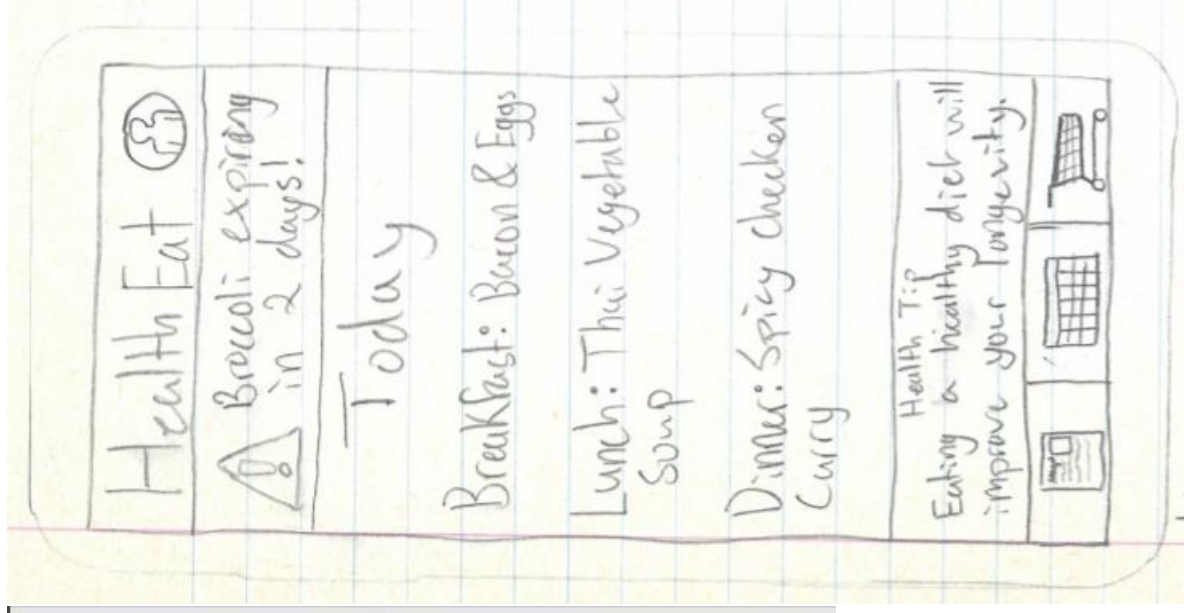 Health Eat
Broccoli expiring
in 2 days!
Today
Breakfast: Bacon & Eggs
Lunch: Thai Vegetable
Soup
Dinner: Spicy Chicken
Curry
Health Tip
Eating a healthy diet will
improve your longevity.